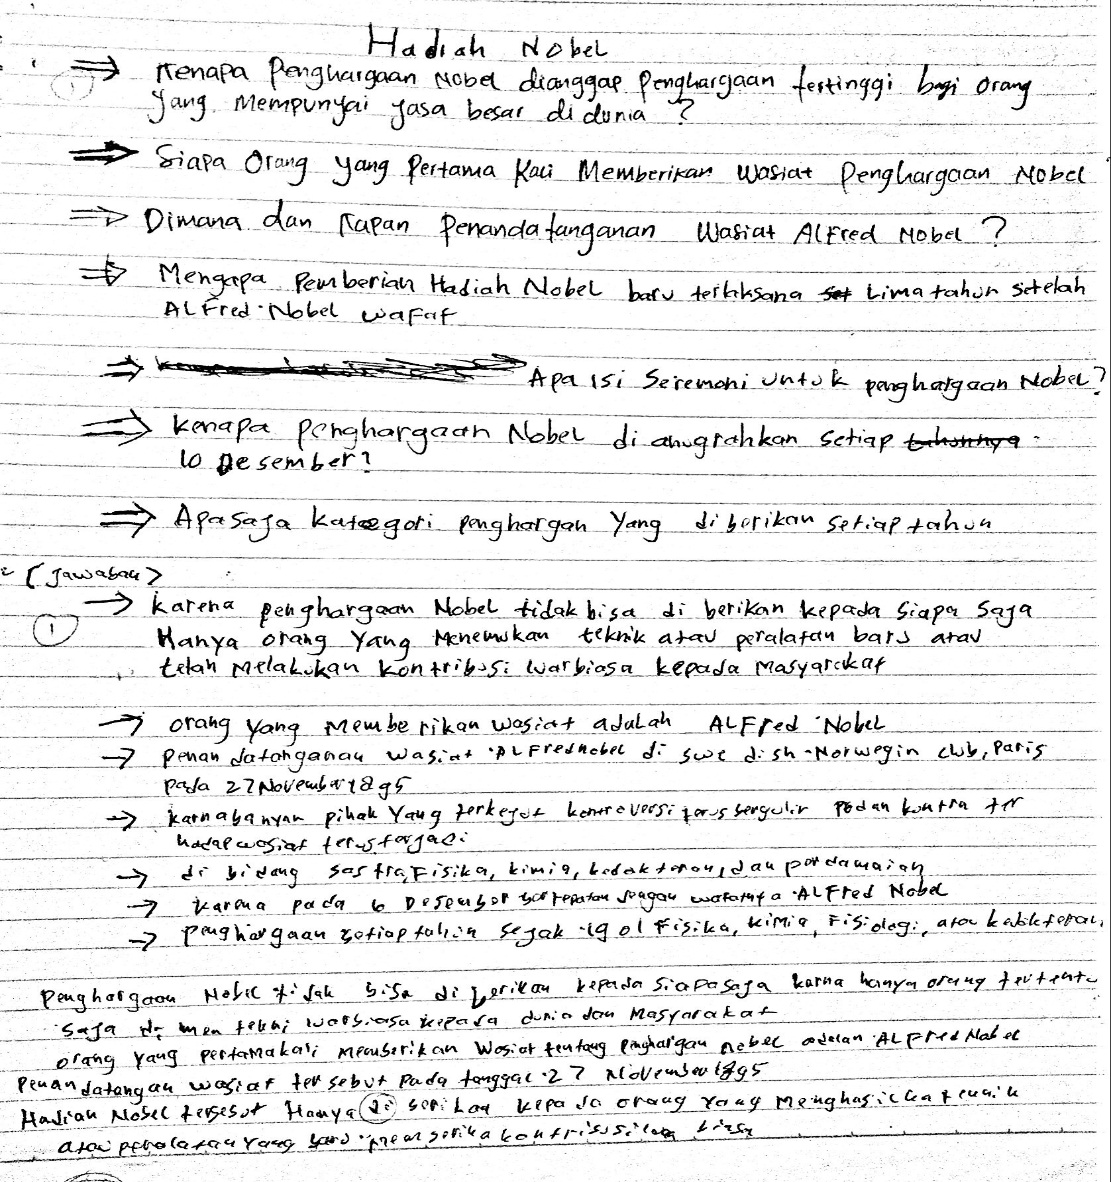 Hadiah Nobel
Kenapa Penghargaan Nobel dianggap Penghargaan tertinggi bagi orang
yang Mempunyai jasa besar di dunia ?
Siapa Orang yang Pertama Kali Memberikan Wasiat Penghargaan Nobel
Dimana dan Kapan Penandatanganan Wasiat Alfred Nobel ?
Mengapa Pemberian Hadiah Nobel baru terlaksana Lima tahun setelah
Alfred Nobel wafat
Apa isi Seremoni untuk penghargaan Nobel?
Kenapa penghargaan Nobel di anugrahkan setiap
10 Desember?
Apa saja kategori penghargan Yang di berikan setiap tahun
(Jawaban)
① Karena penghargaan Nobel tidak bisa di berikan kepada siapa saja
Hanya orang Yang Menemukan teknik atau peralatan baru atau
telah Melakukan Kontribusi luarbiasa kepada Masyarakat
orang yang Memberikan wasiat adalah Alfred Nobel
penandatanganan wasiat Alfred nobel di swedish-Norwegin club, Paris
pada 27 November 1895
karna banyak pihak Yang terkejut kontroversi terus bergulir Pro dan kontra ter
hadap wasiat terus terjadi
di bidang sastra, Fisika, kimia, kedokteran, dan perdamaian
karena pada 10 Desember bertepatan dengan wafatnya Alfred Nobel
penghargaan setiap tahun sejak 1901 Fisika, kimia, Fisiologi, atau kedokteran,
Penghargaan Nobel tidak bisa di berikan kepada siapa saja karna hanya orang tertentu
saja luarbiasa kepada dunia dan Masyarakat
orang yang pertamakali Memberikan Wasiat tentang penghargaan nobel adalah Alfred Nobel
Penandatangan wasiat tersebut Pada tanggal 27 November 1895
Hadiah Nobel tersebut Hanya di berikan kepada orang Yang Menghasilkan teknik
atau peralatan Yang baru kontribusi luar biasa